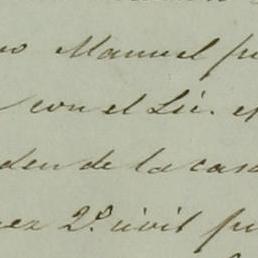 Manuel
con el Lic.
den de la casa
ez 2º civil